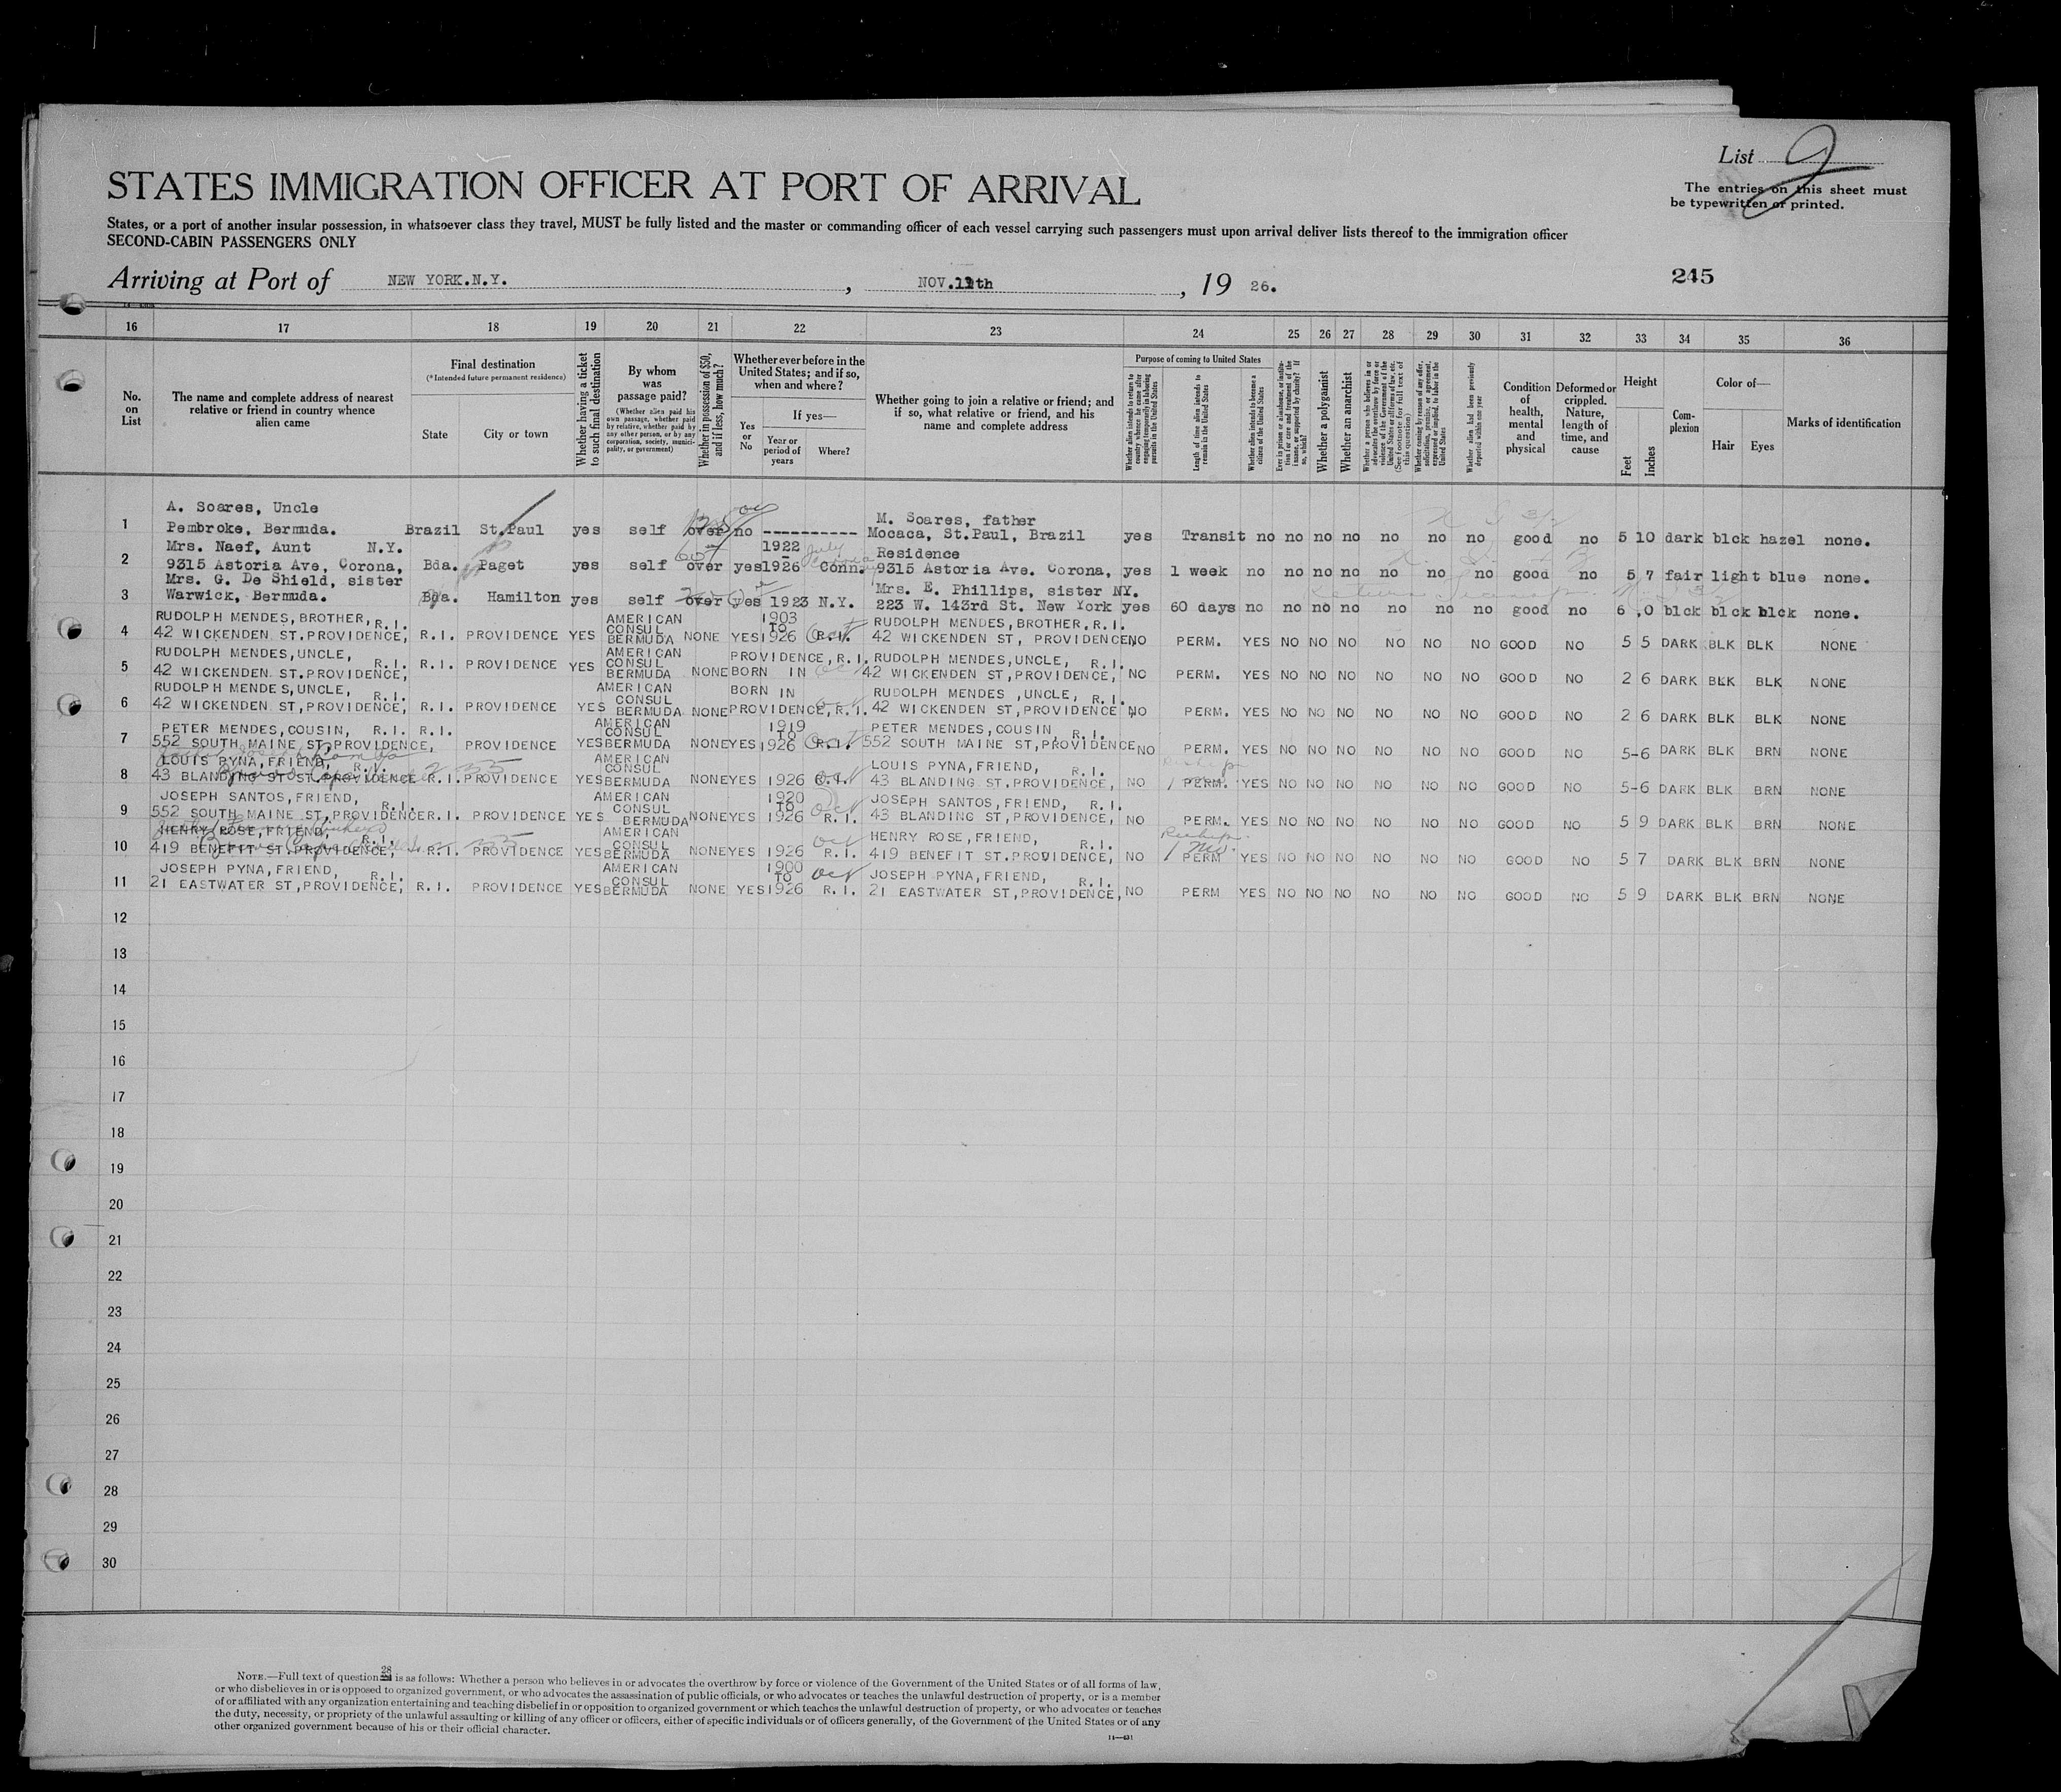 List 2
The entries on this sheet must
be typewritten or printed.
STATES IMMIGRATION OFFICER AT PORT OF ARRIVAL
States, or a port of another insular possession, in whatsoever class they travel, MUST be fully listed and the master or commanding officer of each vessel carrying such passengers must upon arrival deliver lists thereof to the immigration officer
SECOND-CABIN PASSENGERS ONLY
Arriving at Port of NEW YORK.N.Y. , NOV. , 19 26.
245
16 17 18 19 20 21 22 23 24 25 26 27 28 29 30 31 32 33 34 35 36
No. on List
The name and complete address of nearest relative or friend in country whence alien came
Final destination
(*Intended future permanent residence)
State
City or town
Whether having a ticket to such final destination
By whom was passage paid?
(Whether alien paid his own passage, whether paid by relative, whether paid by any other person, or by any corporation, society, municipality, or government)
Whether in possession of $50, and if less, how much?
Whether ever before in the United States; and if so, when and where?
Yes or No
If yes—
Year or period of years
Where?
Whether going to join a relative or friend; and if so, what relative or friend, and his name and complete address
Purpose of coming to United States
Whether alien intends to return to country whence he came after engaging temporarily in laboring pursuits in the United States
Length of time alien intends to remain in the United States
Whether alien intends to become a citizen of the United States
Ever in prison or almshouse, or institution for care and treatment of the insane, or supported by charity? If so, which?
Whether a polygamist
Whether an anarchist
Whether a person who believes in or advocates the overthrow by force or violence of the Government of the United States or all forms of law, etc. (See footnote for full text of this question)
Whether coming by reason of any offer, solicitation, promise, or agreement, expressed or implied, to labor in the United States
Whether alien had been previously deported within one year
Condition of health, mental and physical
Deformed or crippled. Nature, length of time, and cause
Height
Feet
Inches
Complexion
Color of—
Hair
Eyes
Marks of identification
A. Soares, Uncle M. Soares, father
1 Pembroke, Bermuda. Brazil St.Paul yes self over no ---------- Mocaca, St.Paul, Brazil yes Transit no no no no no no no good no 5 10 dark blck hazel none.
Mrs. Naef, Aunt N.Y. 1922 July Residence
2 9315 Astoria Ave, Corona, Bda. Paget yes self over yes 1926 Conn. 9315 Astoria Ave. Corona, yes 1 week no no no no no no no good no 5 7 fair light blue none.
Mrs. G. De Shield, sister Mrs. E. Phillips, sister NY.
3 Warwick, Bermuda. Bda. Hamilton yes self over yes 1923 N.Y. 223 W. 143rd St. New York yes 60 days no no no no no no no good no 6 ,0 blck blck blck none.
RUDOLPH MENDES, BROTHER, R.I. AMERICAN CONSUL 1903 TO RUDOLPH MENDES, BROTHER. R.I.
4 42 WICKENDEN ST. PROVIDENCE, R.I. PROVIDENCE YES BERMUDA NONE YES 1926 R.I. Oct 42 WICKENDEN ST, PROVIDENCE, NO PERM. YES NO NO NO NO NO NO GOOD NO 5 5 DARK BLK BLK NONE
RUDOLPH MENDES, UNCLE, R.I. AMERICAN CONSUL PROVIDENCE, R.I. RUDOLPH MENDES, UNCLE, R.I.
5 42 WICKENDEN ST. PROVIDENCE, R.I. PROVIDENCE YES BERMUDA NONE BORN IN Oct 42 WICKENDEN ST, PROVIDENCE, NO PERM. YES NO NO NO NO NO NO GOOD NO 2 6 DARK BLK BLK NONE
RUDOLPH MENDES, UNCLE, R.I. AMERICAN CONSUL BORN IN RUDOLPH MENDES , UNCLE, R.I.
6 42 WICKENDEN ST, PROVIDENCE, R.I. PROVIDENCE YES BERMUDA NONE PROVIDENCE, R.I. 42 WICKENDEN ST, PROVIDENCE NO PERM. YES NO NO NO NO NO NO GOOD NO 2 6 DARK BLK BLK NONE
PETER MENDES, COUSIN, R.I. R.I. AMERICAN CONSUL 1919 TO PETER MENDES, COUSIN, R.I.
7 552 SOUTH MAINE ST, PROVIDENCE, PROVIDENCE YES BERMUDA NONE YES 1926 R.I. Oct 552 SOUTH MAINE ST, PROVIDENCE NO PERM. YES NO NO NO NO NO NO GOOD NO 5-6 DARK BLK BRN NONE
LOUIS PYNA, FRIEND, R.I. AMERICAN CONSUL LOUIS PYNA, FRIEND, R.I.
8 43 BLANDING ST PROVIDENCE R.I. PROVIDENCE YES BERMUDA NONE YES 1926 Oct 43 BLANDING ST, PROVIDENCE, NO PERM. YES NO NO NO NO NO NO GOOD NO 5-6 DARK BLK BRN NONE
JOSEPH SANTOS, FRIEND, R.I. AMERICAN CONSUL 1920 TO Oct JOSEPH SANTOS, FRIEND, R.I.
9 552 SOUTH MAINE ST, PROVIDENCE R.I. PROVIDENCE YES BERMUDA NONE YES 1926 R.I. 43 BLANDING ST, PROVIDENCE, NO PERM. YES NO NO NO NO NO NO GOOD NO 5 9 DARK BLK BRN NONE
HENRY ROSE, FRIEND, R.I. AMERICAN CONSUL Oct HENRY ROSE, FRIEND, R.I.
10 419 BENEFIT ST. PROVIDENCE, R.I. PROVIDENCE YES BERMUDA NONE YES 1926 R.I. 419 BENEFIT ST. PROVIDENCE, NO PERM YES NO NO NO NO NO NO GOOD NO 5 7 DARK BLK BRN NONE
JOSEPH PYNA, FRIEND, R.I. AMERICAN CONSUL 1900 TO Oct JOSEPH PYNA, FRIEND, R.I.
11 21 EASTWATER ST, PROVIDENCE, R.I. PROVIDENCE YES BERMUDA NONE YES 1926 R.I. 21 EASTWATER ST, PROVIDENCE, NO PERM YES NO NO NO NO NO NO GOOD NO 5 9 DARK BLK BRN NONE
12
13
14
15
16
17
18
19
20
21
22
23
24
25
26
27
28
29
30
NOTE.—Full text of question 28 is as follows: Whether a person who believes in or advocates the overthrow by force or violence of the Government of the United States or of all forms of law,
or who disbelieves in or is opposed to organized government, or who advocates the assassination of public officials, or who advocates or teaches the unlawful destruction of property, or is a member
of or affiliated with any organization entertaining and teaching disbelief in or opposition to organized government or which teaches the unlawful destruction of property, or who advocates or teaches
the duty, necessity, or propriety of the unlawful assaulting or killing of any officer or officers, either of specific individuals or of officers generally, of the Government of the United States or of any
other organized government because of his or their official character.